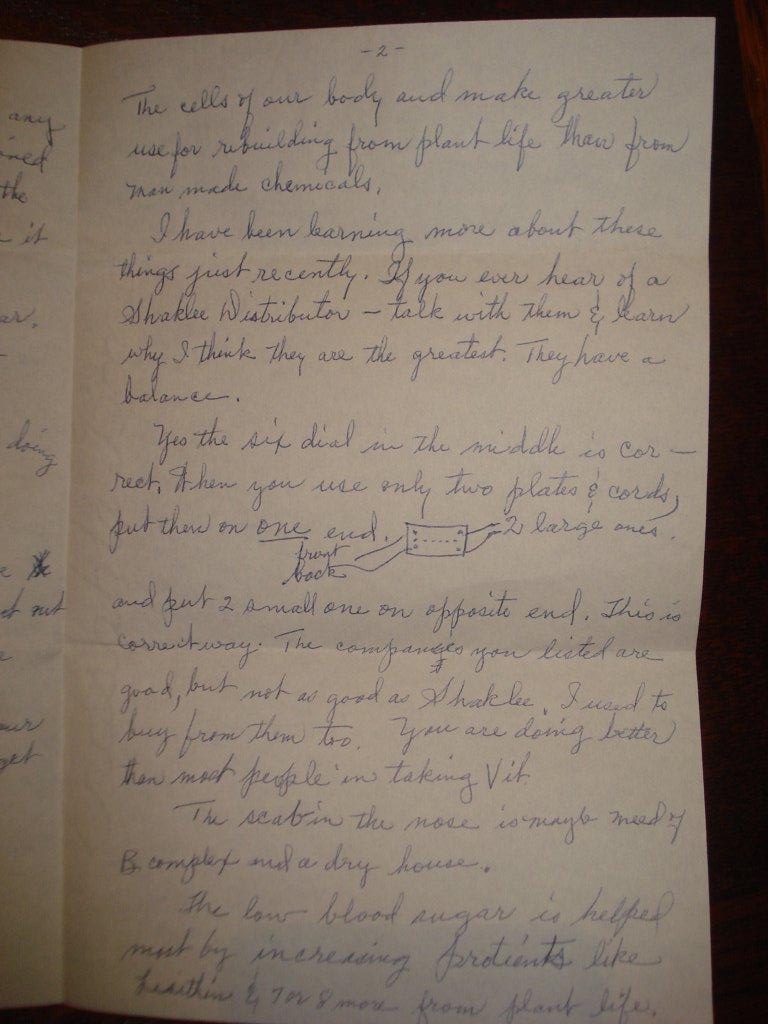 any
oned
the
it
ar.
doing
ur
get
- 2 -
The cells of our body and make greater
use for rebuilding from plant life than from
man made chemicals.
I have been learning more about these
things just recently. If you ever hear of a
Shaklee Distributor – talk with them & learn
why I think they are the greatest. They have a
balance.
Yes the six dial in the middle is cor –
rect. When you use only two plates & cords,
put them on one end. 2 large ones.
front
back
and put 2 small one on opposite end. This is
correct way. The companies you listed are
good, but not as good as Shaklee. I used to
buy from them too. You are doing better
than most people in taking Vit.
The scab in the nose is maybe need of
B complex and a dry house.
The low blood sugar is helped
most by increasing protients like
Lesithin & 7 or 8 more from plant life.